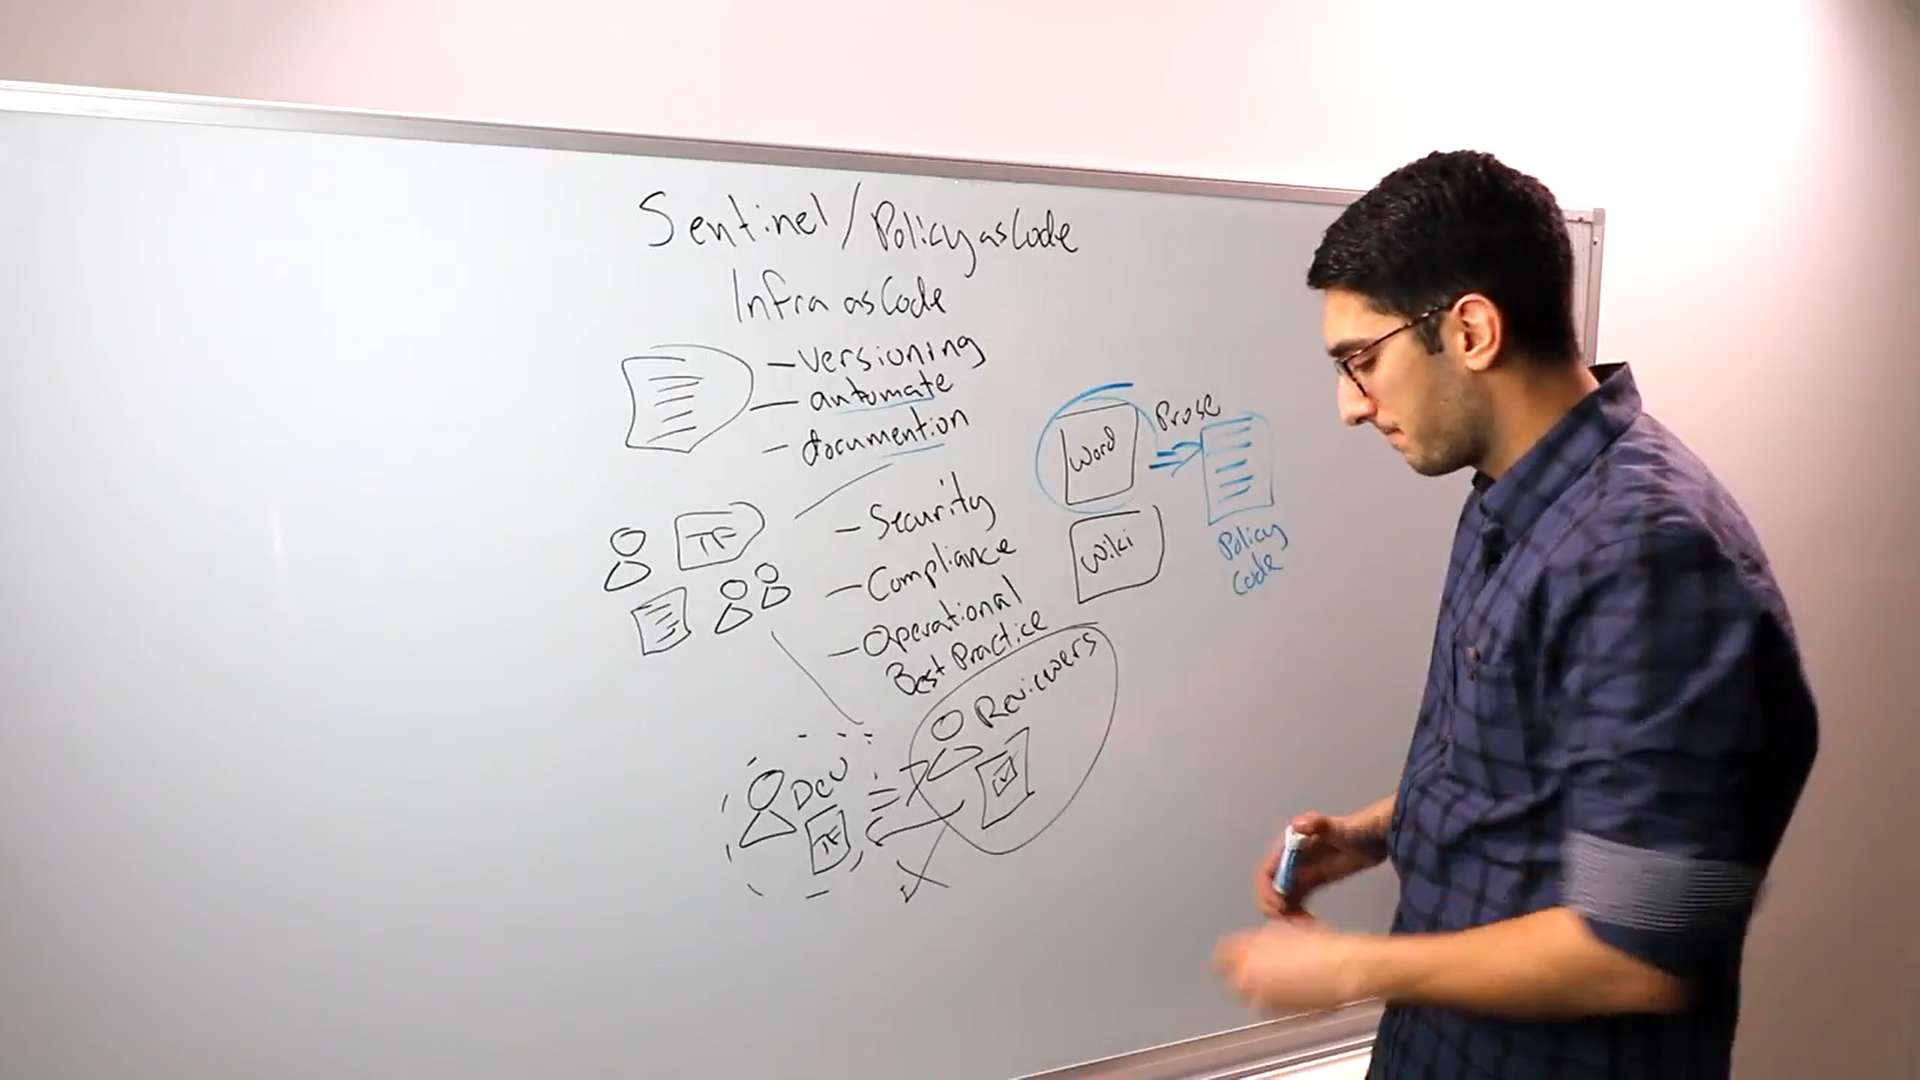 Sentinel/Policy as Code
Infra as Code
- versioning
- automate
- documention
TF
- Security
- Compliance
- Operational
Best Practice
Word
Prose
Wiki
Policy
Code
Reviewers
Dev
TF